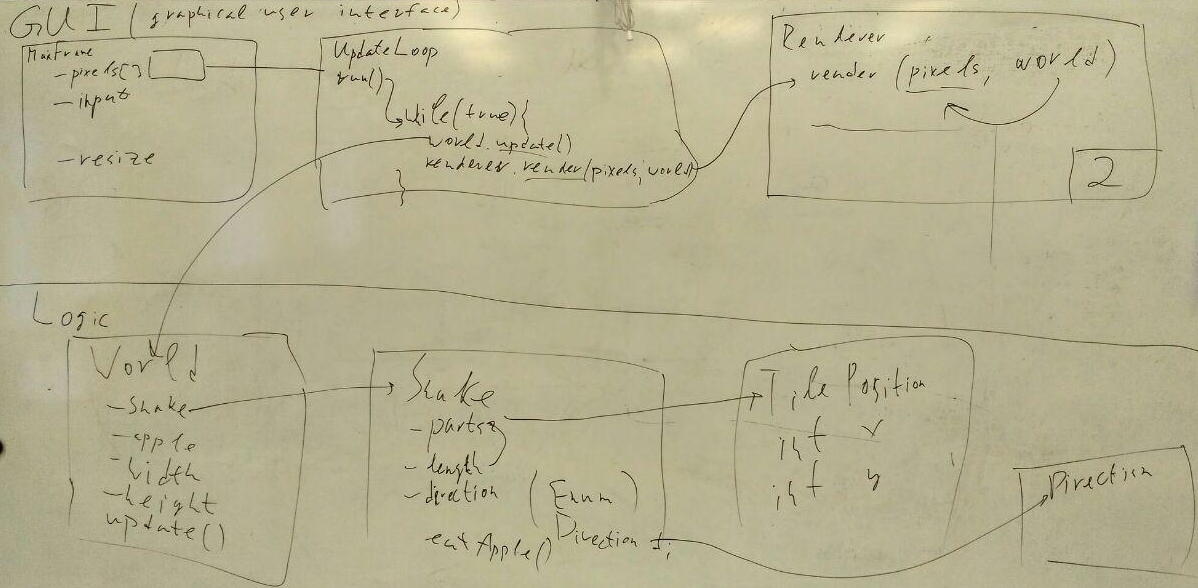 GUI (graphical user interface)
Mainframe
- pixels[]
- input
- resize
UpdateLoop
run()
while(true){
world.update()
renderer.render(pixels, world)
}
Renderer
render (pixels, world)
2
Logic
World
- Snake
- apple
- width
- height
update()
Snake
- parts
- length
- direction (Enum)
eatApple() Direction d;
Tile Position
int x
int y
Direction